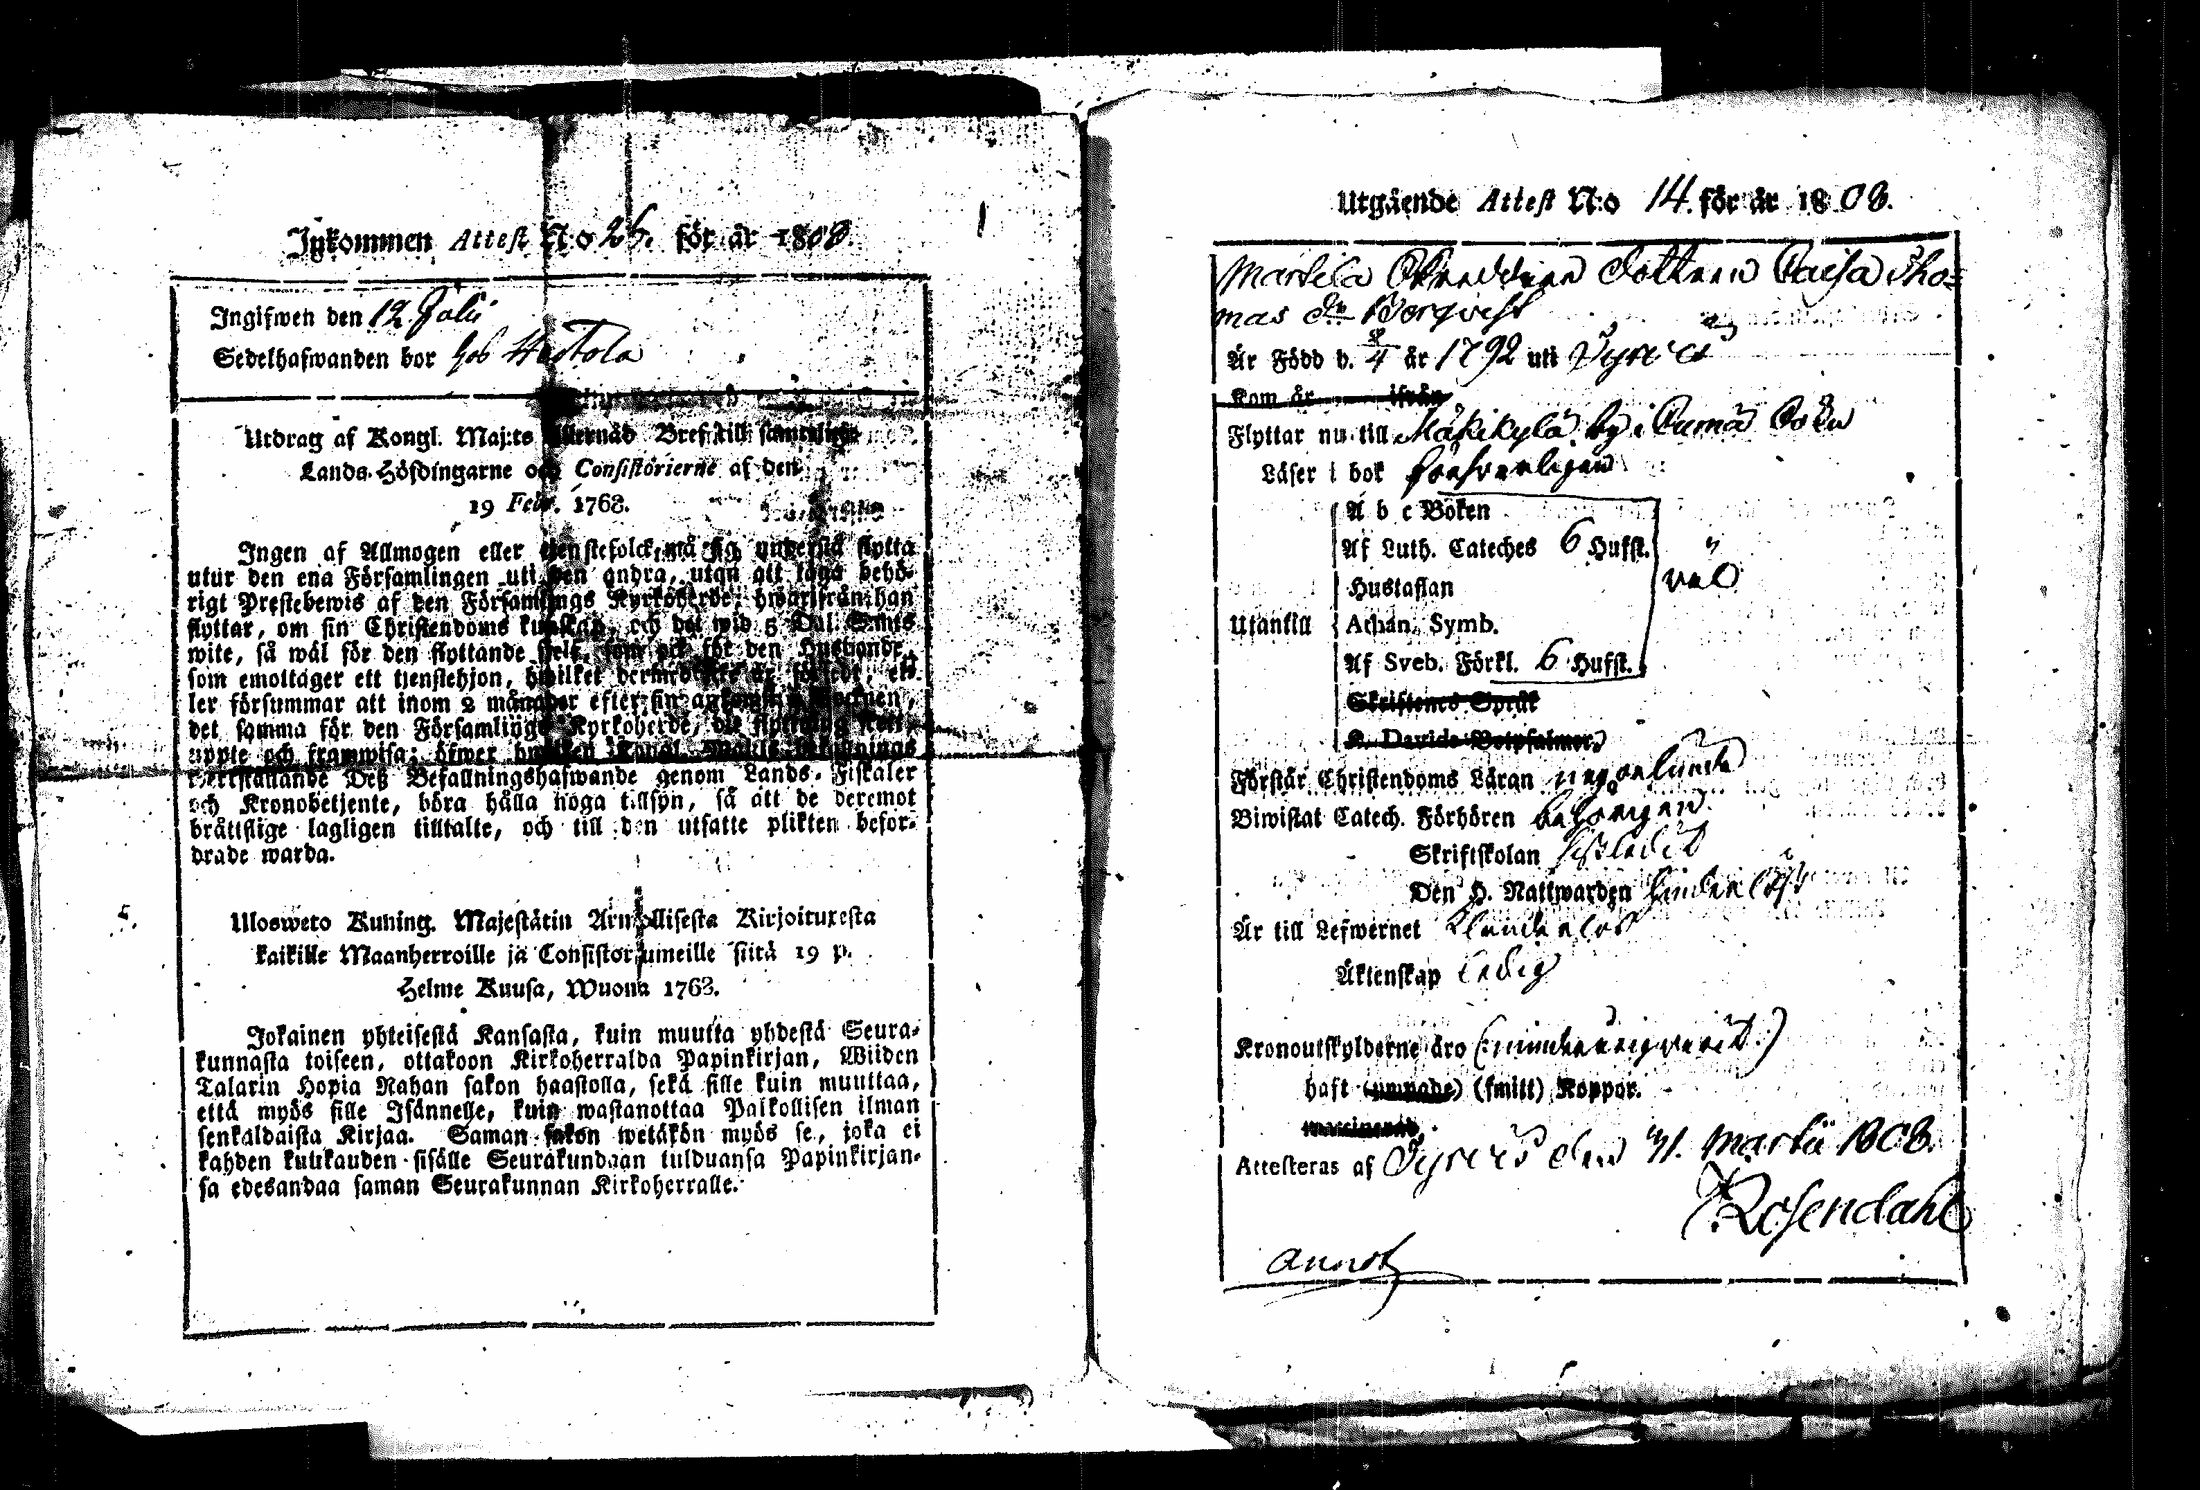 Inkommen Attest N:o 26. för år 1808
Ingifwen den 12 Julii
Sedelhafwanden bor hos
Utdrag af Kongl. Maj:ts Bref till samtelige
Lands-Höfdingarne och Consistorierne af den
19 Febr. 1763.
Ingen af Allmogen eller tjenstefolck, må sig understå flytta
utur den ena Församlingen uti den andra, utan att taga behö-
rigt Prestebewis af den Församlings Kyrkoherde, hwarifrån han
flyttar, om sin Christendoms kunskap, och det wid 5 Dal. S:mts
wite, så wäl för den flyttande sjelf, som ock för den Husbonde,
som emottager ett tjenstehjon, hwilket dermed icke är försedt, el-
ler försummar att inom 2 månader efter sin ankomst i Socknen,
det samma för den Församlings Kyrkoherde,
uppte och framwisa; öfwer hwilken Kongl. Maj:ts
werkställande Deß Befallningshafwande genom Lands-Fiskaler
och Kronobetjente, böra hålla noga tillsyn, så att de deremot
bråttslige lagligen tilltalte, och till den utsatte plikten befor-
drade warda.
Ulosweto Kuning. Majestätin Armollisesta Kirjoituxesta
kaikille Maanherroille ja Consistoriumeille siitä 19 p.
Helme Kuusa, Wuona 1763.
Jokainen yhteisestä Kansasta, kuin muutta yhdestä Seura-
kunnasta toiseen, ottakoon Kirkoherralda Papinkirjan, Wiiden
Talarin Hopia Rahan sakon haastolla, sekä sille kuin muuttaa,
että myös sille Isännelle, kuin wastanottaa Palkollisen ilman
senkaldaista Kirjaa. Saman sakon wetäkön myös se, joka ei
kahden kuukauden sisälle Seurakundaan tulduansa Papinkirjan-
sa edesandaa saman Seurakunnan Kirkoherralle.
Utgående Attest N:o 14. för år 1808.
Martila dottren Caisa Tho=
mas d:r Borgvist
Är Född d. 8/4 år 1792 uti Tyrvis
Kom år ifrån
Flyttar nu till Mäkikylä by i Cumo Sokn
Läser i bok försvarligen
A b c Boken
Af Luth. Cateches 6 Hufst.
väl
Hustaflan
Utantill
Athan. Symb.
Af Sveb. Förkl. 6 Hufst.
Skriftenes Språk
K. Davids Botpsalmer.
Förstår Christendoms Läran någorlunda
Biwistat Catech. Förhören behörigen
Skriftskolan
Den H. Nattwarden hinderlöst
Är till Lefwernet klanderlös
Äktenskap ledig
Kronoutskylderne äro (:minderårig varit:)
haft (smitt) Koppor.
Attesteras af Tyrvis den 31. Martii 1808.
Rosendahl
annot